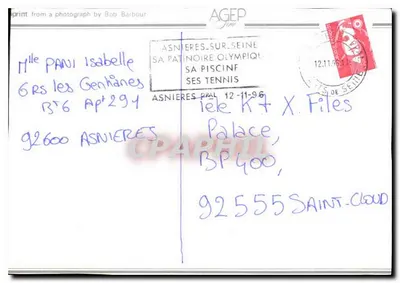 print from a photograph by Bob Barbour
AGEP
ASNIERES-SUR-SEINE
SA PATINOIRE OLYMPIQUE
SA PISCINE
SES TENNIS
ASNIERES PAL 12-11-96
12.11.96
Mlle PANI Isabelle
6 RS les Gentianes
BT6 Apt 291
92600 ASNIERES
Télé K7 X. Files
Palace,
BP 400,
92555 SAINT-CLOUD